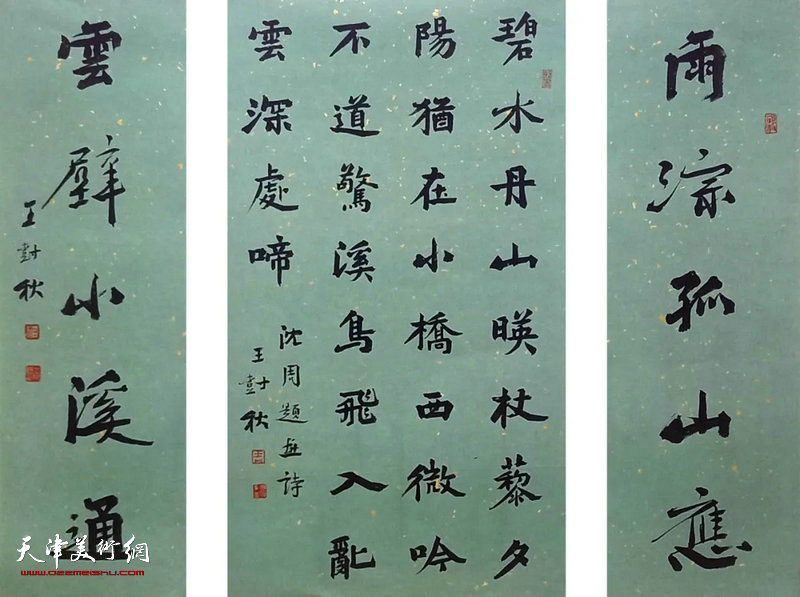 雨淙孤山應
碧水丹山暎杖藜夕
陽猶在小橋西微吟
不道驚溪鳥飛入亂
雲深處啼
沈周題画詩
王尌秋
雲壁小溪通
王尌秋
天津美術網
www.022meishu.com